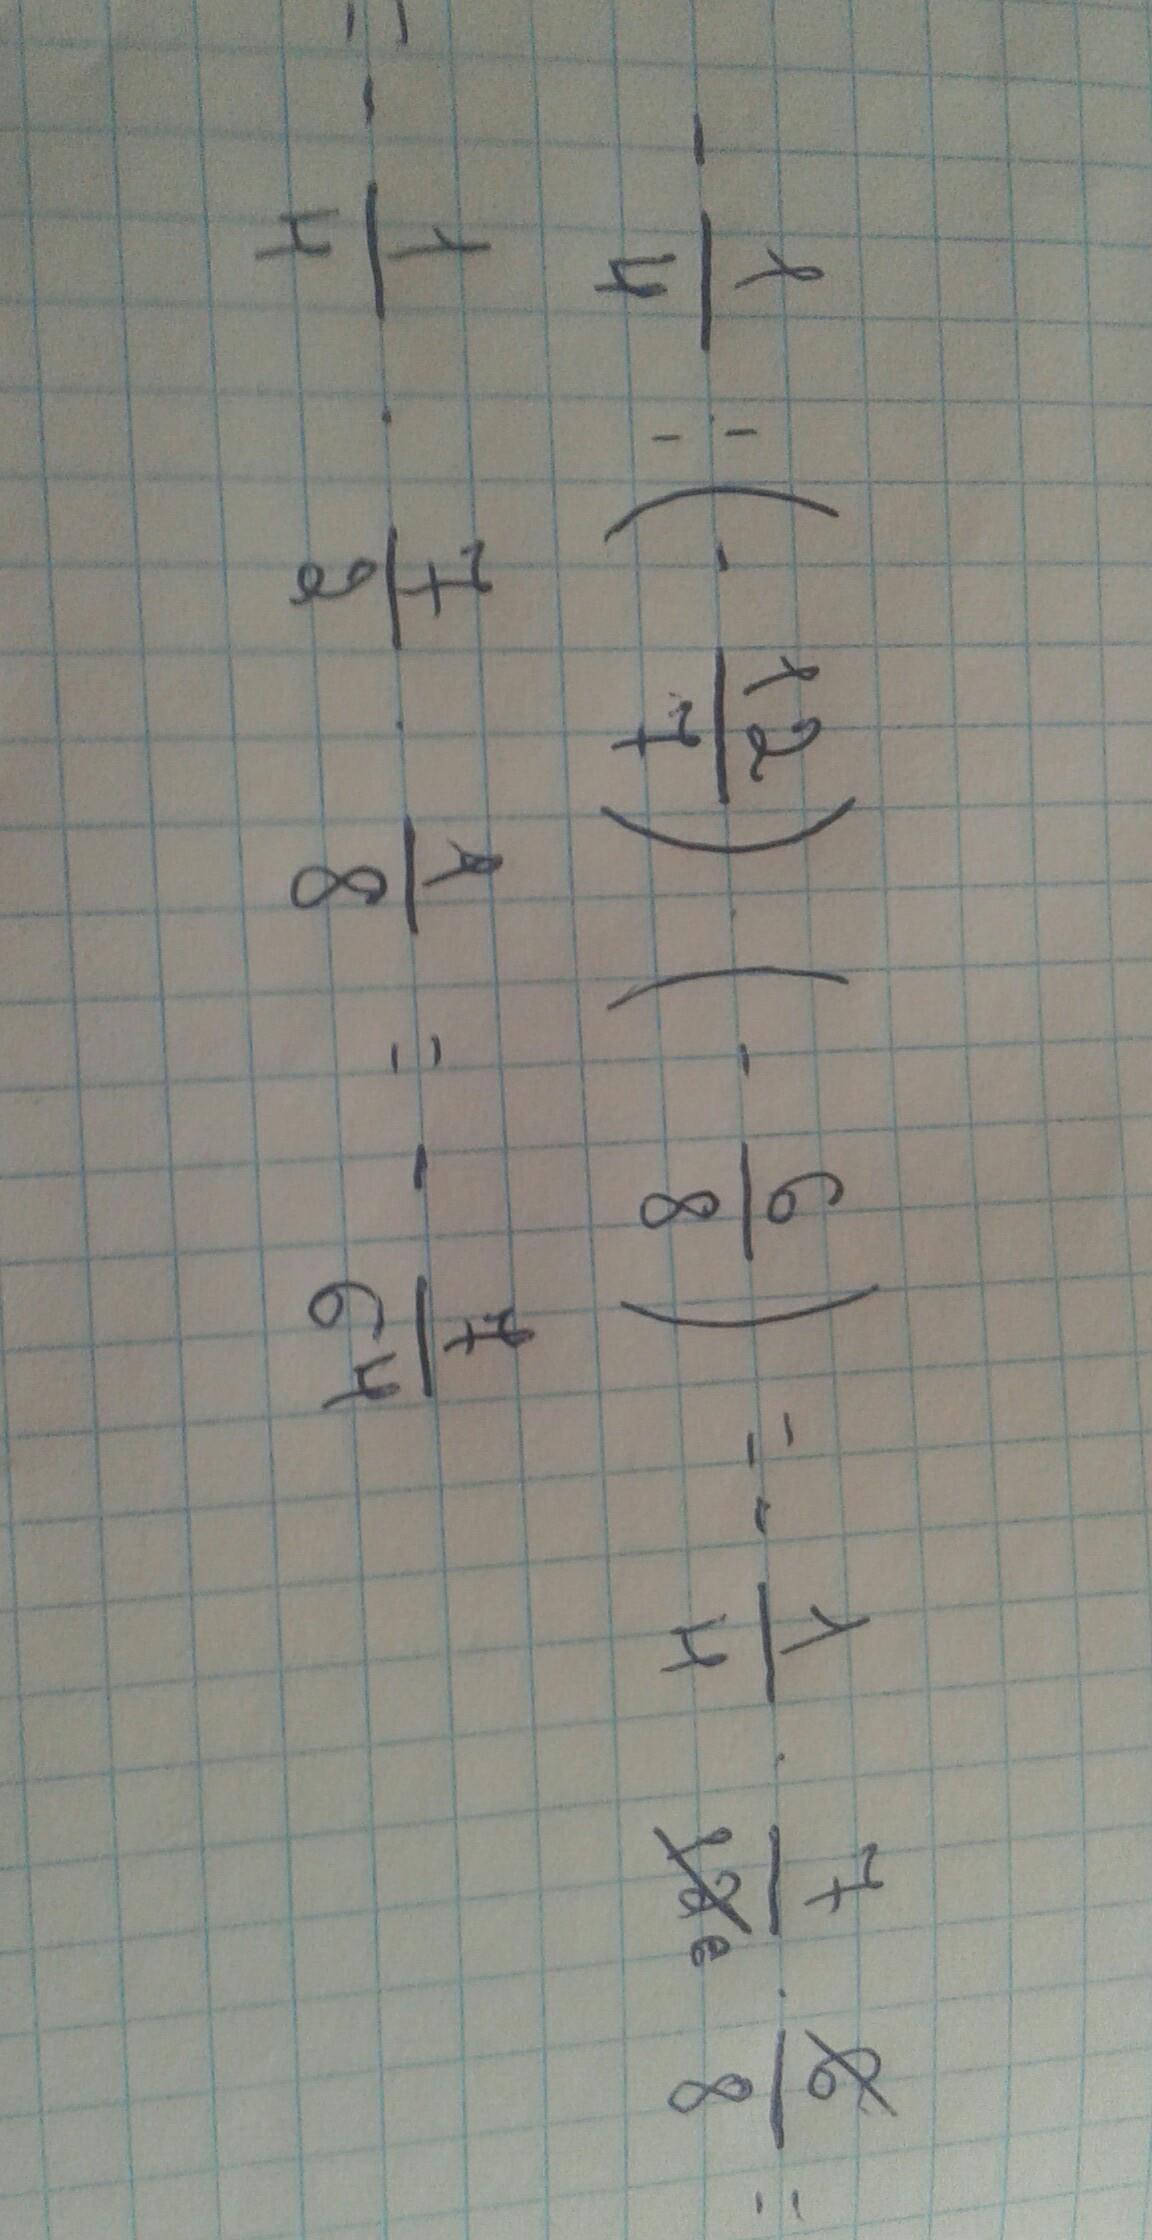 - 1/4 : (- 12/7) · (- 6/8) = - 1/4 · 7/12 2 · 6/8 =
= - 1/4 · 7/2 · 1/8 = - 7/64